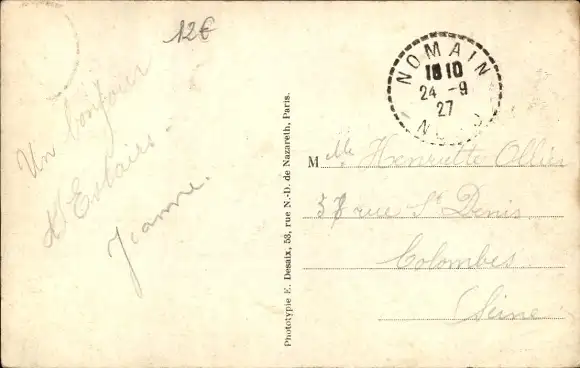 12€
Un bonjour
d'Estaires.
Jeanne.
Phototypie E. Desaix, 53, rue N.-D. de Nazareth, Paris.
NOMAIN
18 10
24 -9
27
N
Mlle Henriette Ollier
37 rue St Denis
Colombes
(Seine)